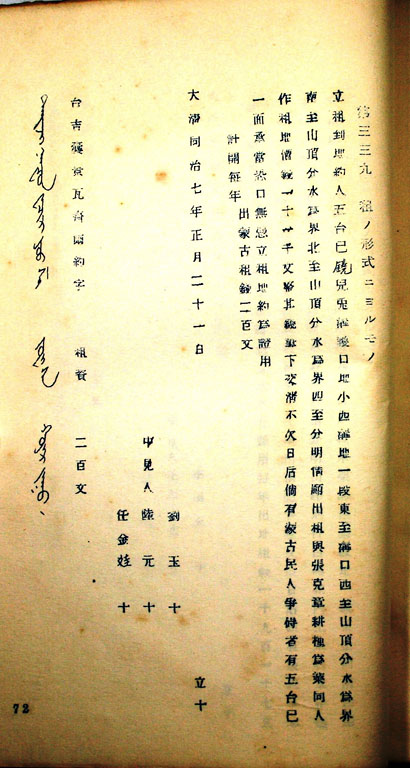 第三三九 租ノ形式ニヨルモノ
立租到地約人五台巳兒兎溝口地小西溝地一段東至溝口西至山頂分水爲界
南至山頂分水爲界北至山頂分水爲界四至分明情願出租與張克章耕種爲業同人
作租地價錢一十千文整其錢筆下交清不欠日后倘有蒙古民人爭碍者有五台巳
一面承當恐口無憑立租地約爲證用
計開每年 出蒙古租錢二百文
大清同治七年正月二十一日
立十
劉玉十
中見人 陸元十
任金娃十
台吉瓦齊爾約字 租資 二百文
72